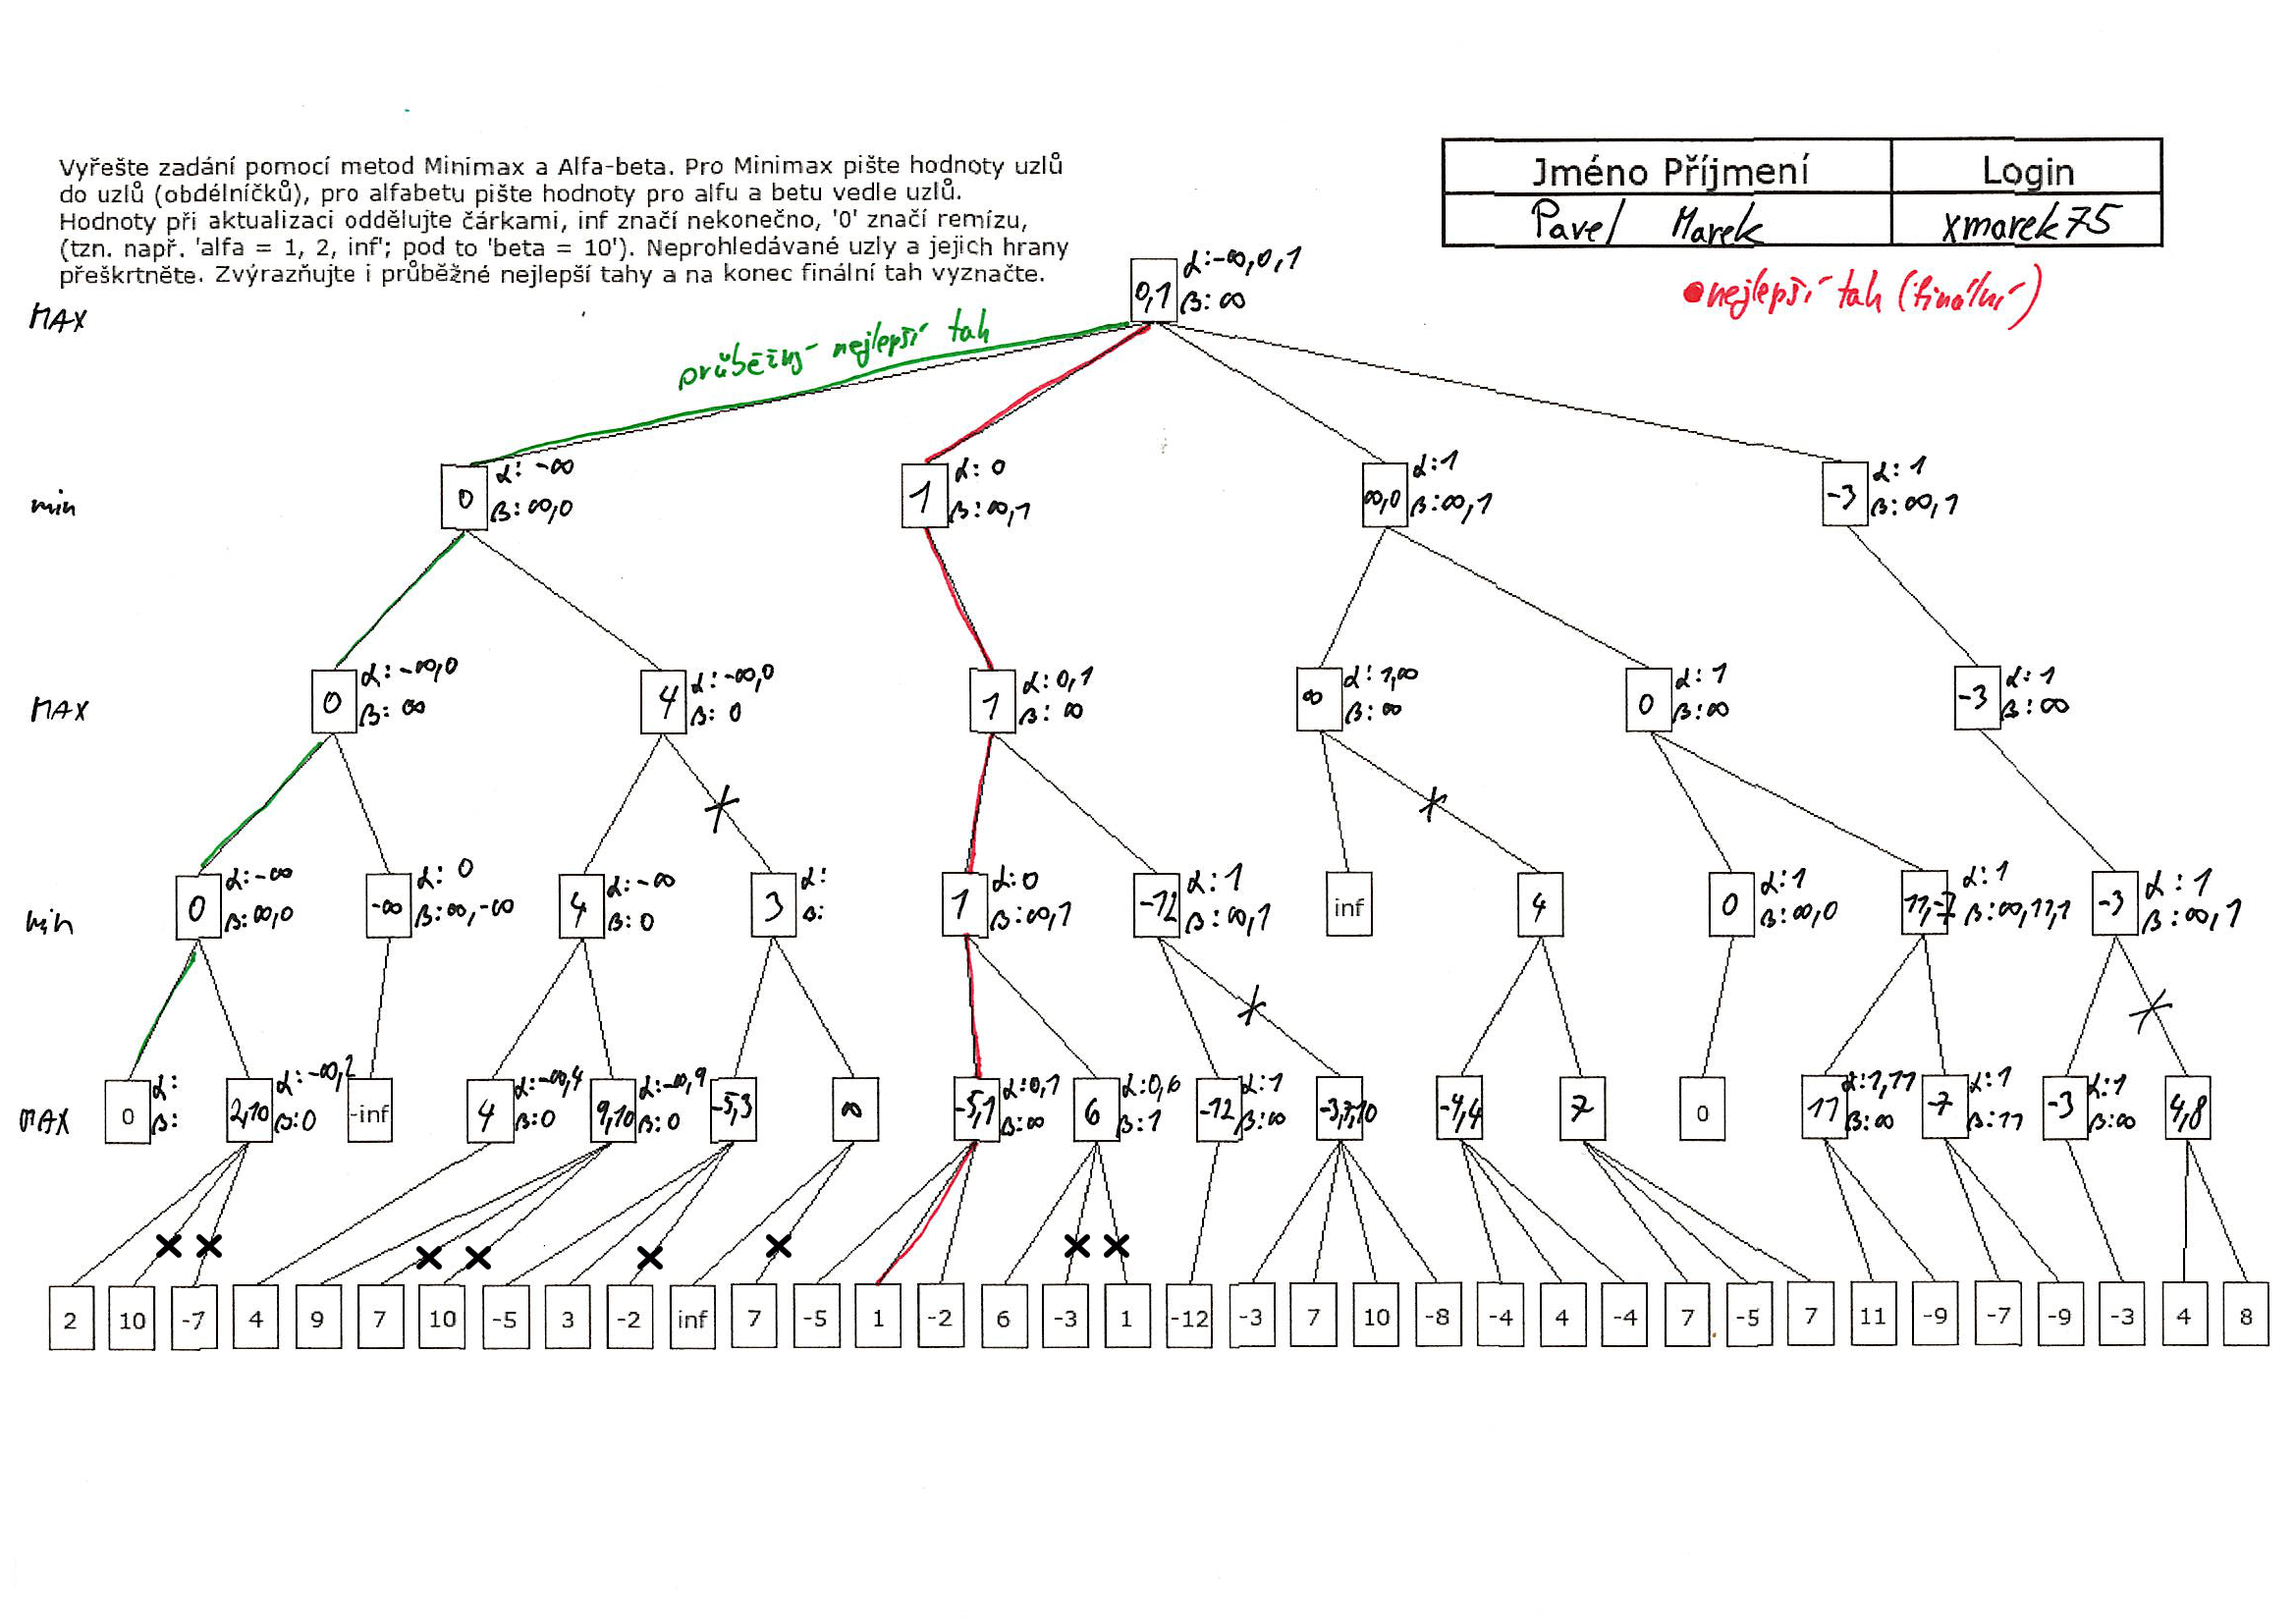 Vyřešte zadání pomocí metod Minimax a Alfa-beta. Pro Minimax pište hodnoty uzlů
do uzlů (obdélníčků), pro alfabetu pište hodnoty pro alfu a betu vedle uzlů.
Hodnoty při aktualizaci oddělujte čárkami, inf značí nekonečno, '0' značí remízu,
(tzn. např. 'alfa = 1, 2, inf'; pod to 'beta = 10'). Neprohledávané uzly a jejich hrany
přeškrtněte. Zvýrazňujte i průběžné nejlepší tahy a na konec finální tah vyznačte.
Jméno Příjmení Login
Pavel Marek xmarek75
nejlepší tah (finální)
MAX
0,1 α:-∞,0,1
β:∞
průběžný nejlepší tah
min
0 α:-∞ 1 α:0 ∞,0 α:1 -3 α:1
β:∞,0 β:∞,1 β:∞,1 β:∞,1
MAX
0 α:-∞,0 4 α:-∞,0 1 α:0,1 ∞ α:1,∞ 0 α:1 -3 α:1
β:∞ β:0 β:∞ β:∞ β:∞ β:∞
min
0 α:-∞ -∞ α:0 4 α:-∞ 3 α: 1 α:0 -12 α:1 inf 4 0 α:1 11,-7 α:1 -3 α:1
β:∞,0 β:∞,-∞ β:0 β: β:∞,1 β:∞,1 β:∞,0 β:∞,11,1 β:∞,1
MAX
0 α: 2,10 α:-∞,2 -inf 4 α:-∞,4 9,10 α:-∞,9 -5,3 ∞ -5,1 α:0,1 6 α:0,6 -12 α:1 -3,7,10 -4,4 7 0 11 α:1,11 -7 α:1 -3 α:1 4,8
β: β:0 β:0 β:0 β:∞ β:1 β:∞ β:∞ β:11 β:∞
2 10 -7 4 9 7 10 -5 3 -2 inf 7 -5 1 -2 6 -3 1 -12 -3 7 10 -8 -4 4 -4 7 -5 7 11 -9 -7 -9 -3 4 8